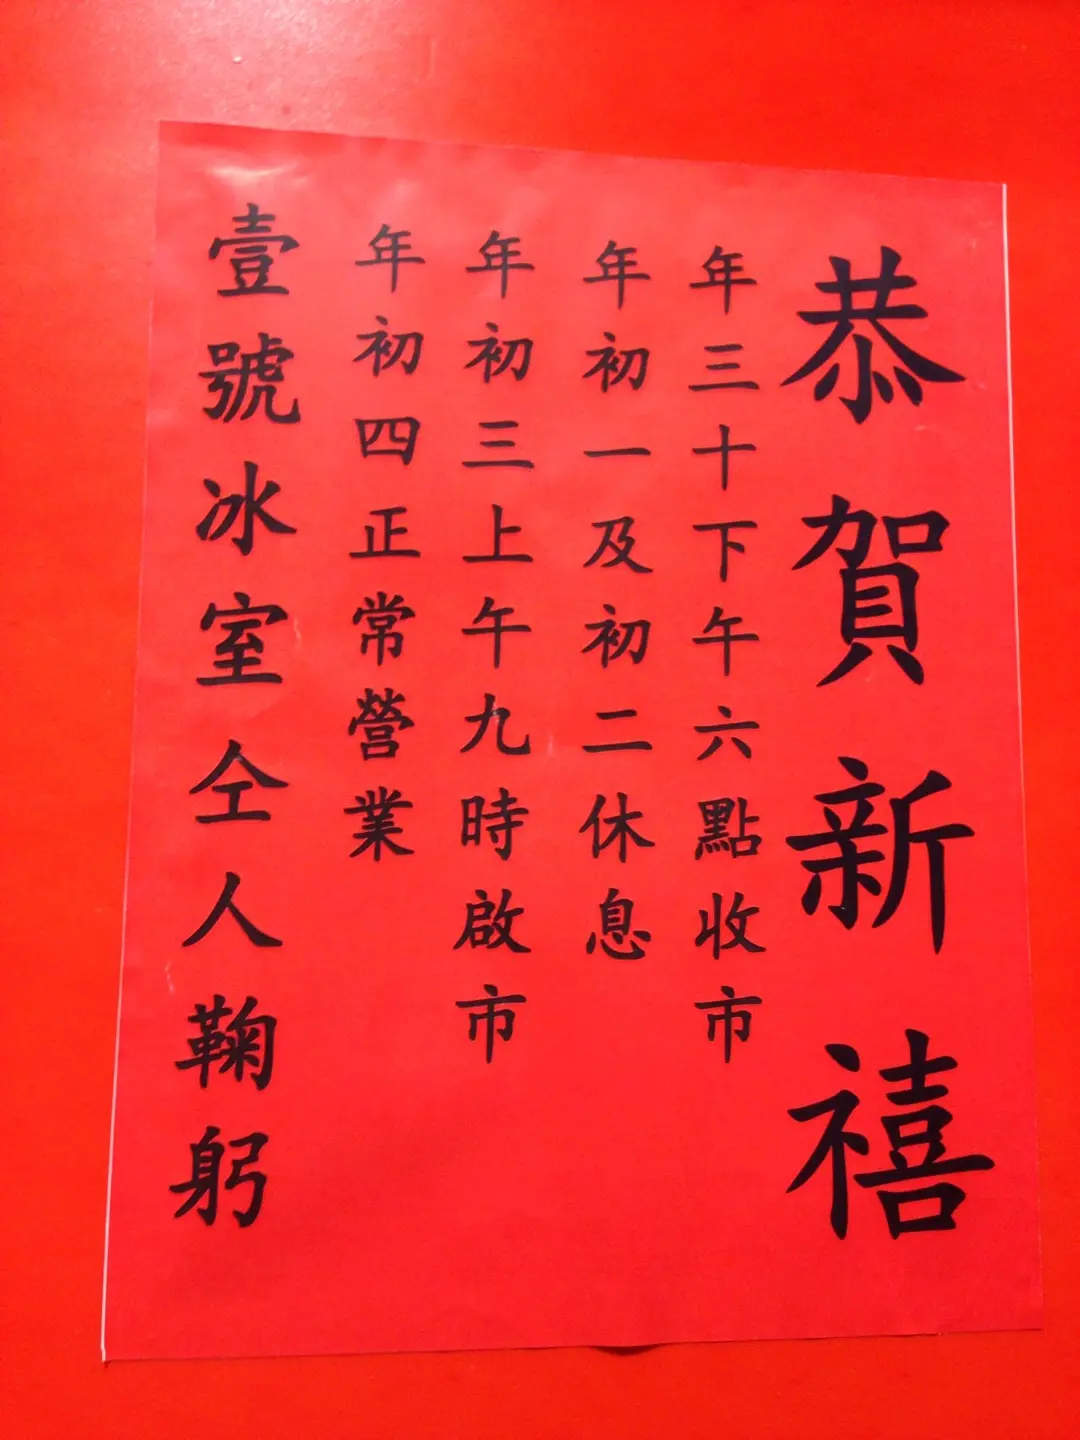 恭賀新禧
年三十下午六點收市
年初一及初二休息
年初三上午九時啟市
年初四正常營業
壹號冰室仝人鞠躬